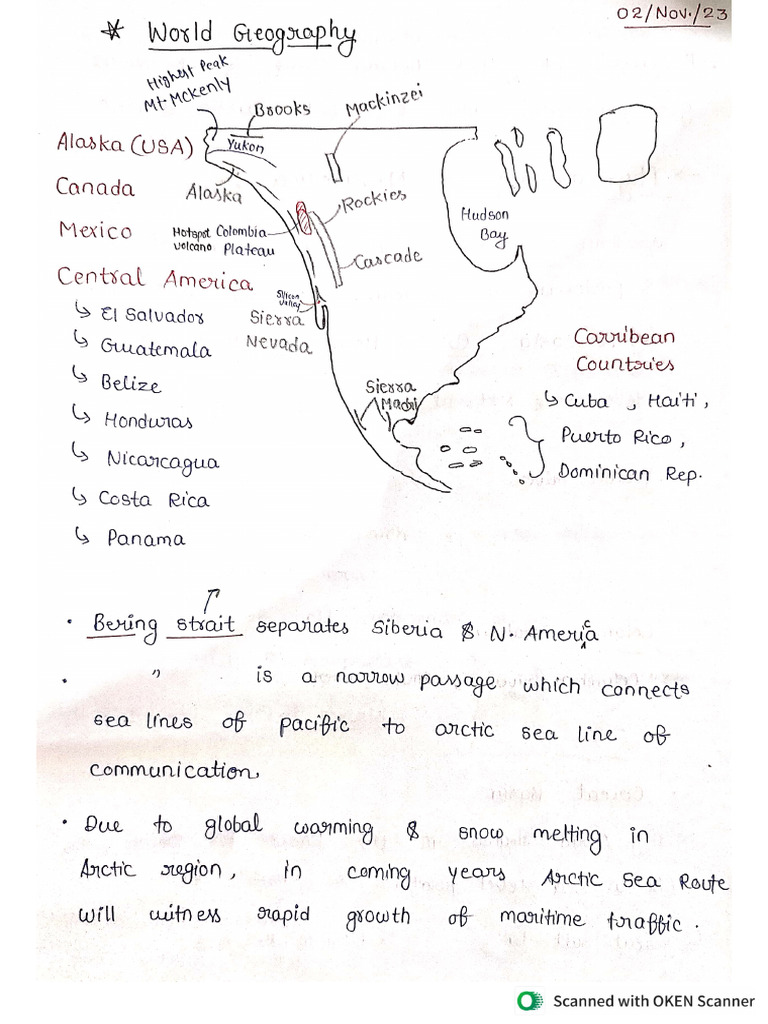 02/Nov./23
* World Geography
Highest Peak
Mt. McKenly
Brooks
Mackinzei
Alaska (USA)
Yukon
Canada
Alaska
Rockies
Mexico
Hotspot
volcano
Colombia
Plateau
Hudson
Bay
Cascade
Central America
Silicon
Valley
↳ El Salvador
Sierra
Nevada
↳ Guatemala
↳ Belize
↳ Honduras
↳ Nicarcagua
↳ Costa Rica
↳ Panama
Sierra
Madri
Carribean
Countries
↳ Cuba, Haiti,
Puerto Rico,
Dominican Rep.
• Bering strait separates Siberia & N. America
• " is a narrow passage which connects
sea lines of pacific to arctic sea line of
communication,
• Due to global warming & snow melting in
Arctic region, in coming years Arctic Sea Route
will witness rapid growth of maritime traffic.
Scanned with OKEN Scanner